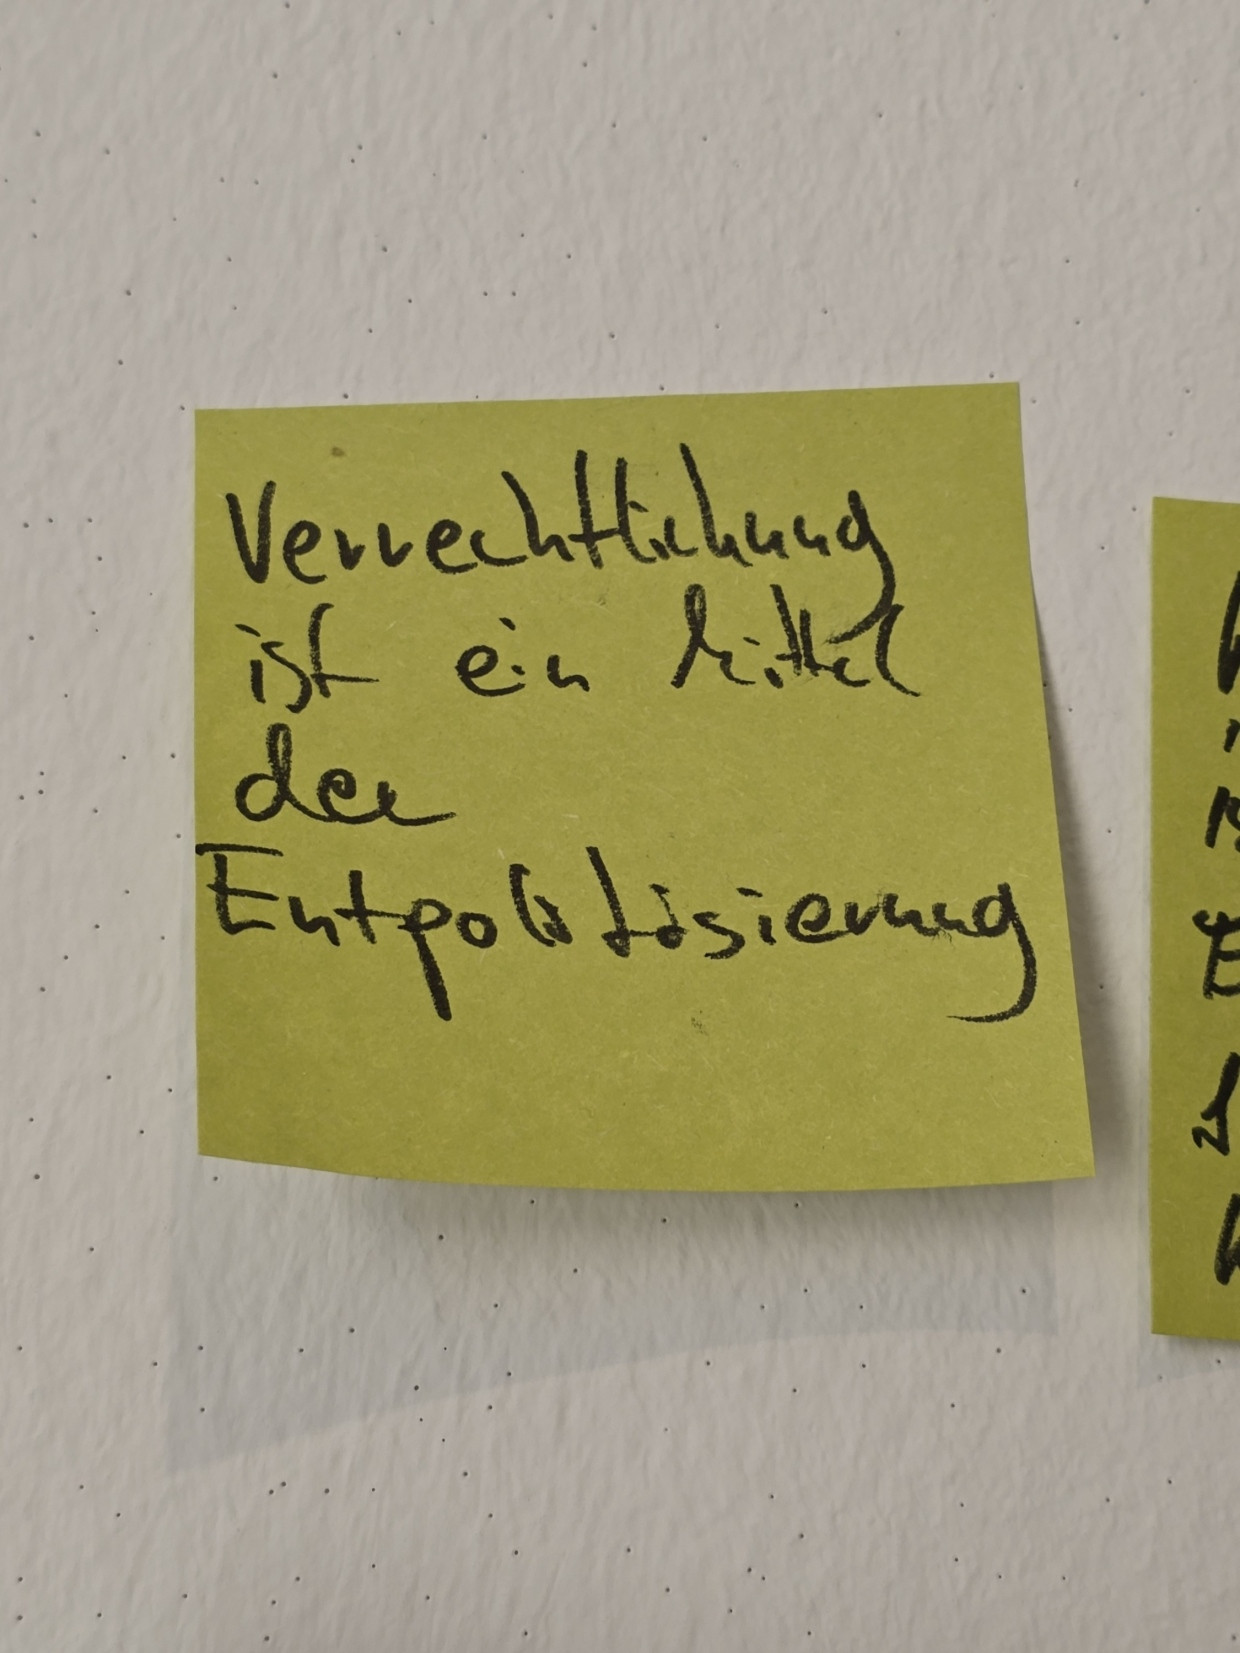 Verrechtlichung
ist ein Mittel
der
Entpolitisierung